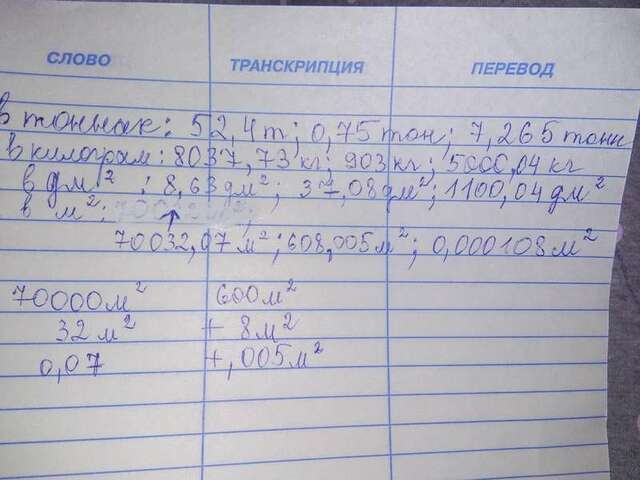 СЛОВО ТРАНСКРИПЦИЯ ПЕРЕВОД
в тоннах: 52,4 т; 0,75 тон; 7,265 тонн
в килограм: 8037,73 кг; 903 кг; 5000,04 кг
в дм²: 8,63 дм²; 37,08 дм²; 1100,04 дм²
в м²:
70032,07 м²; 608,005 м²; 0,000108 м²
70000 м² 600 м²
32 м² + 8 м²
0,07 +,005 м²